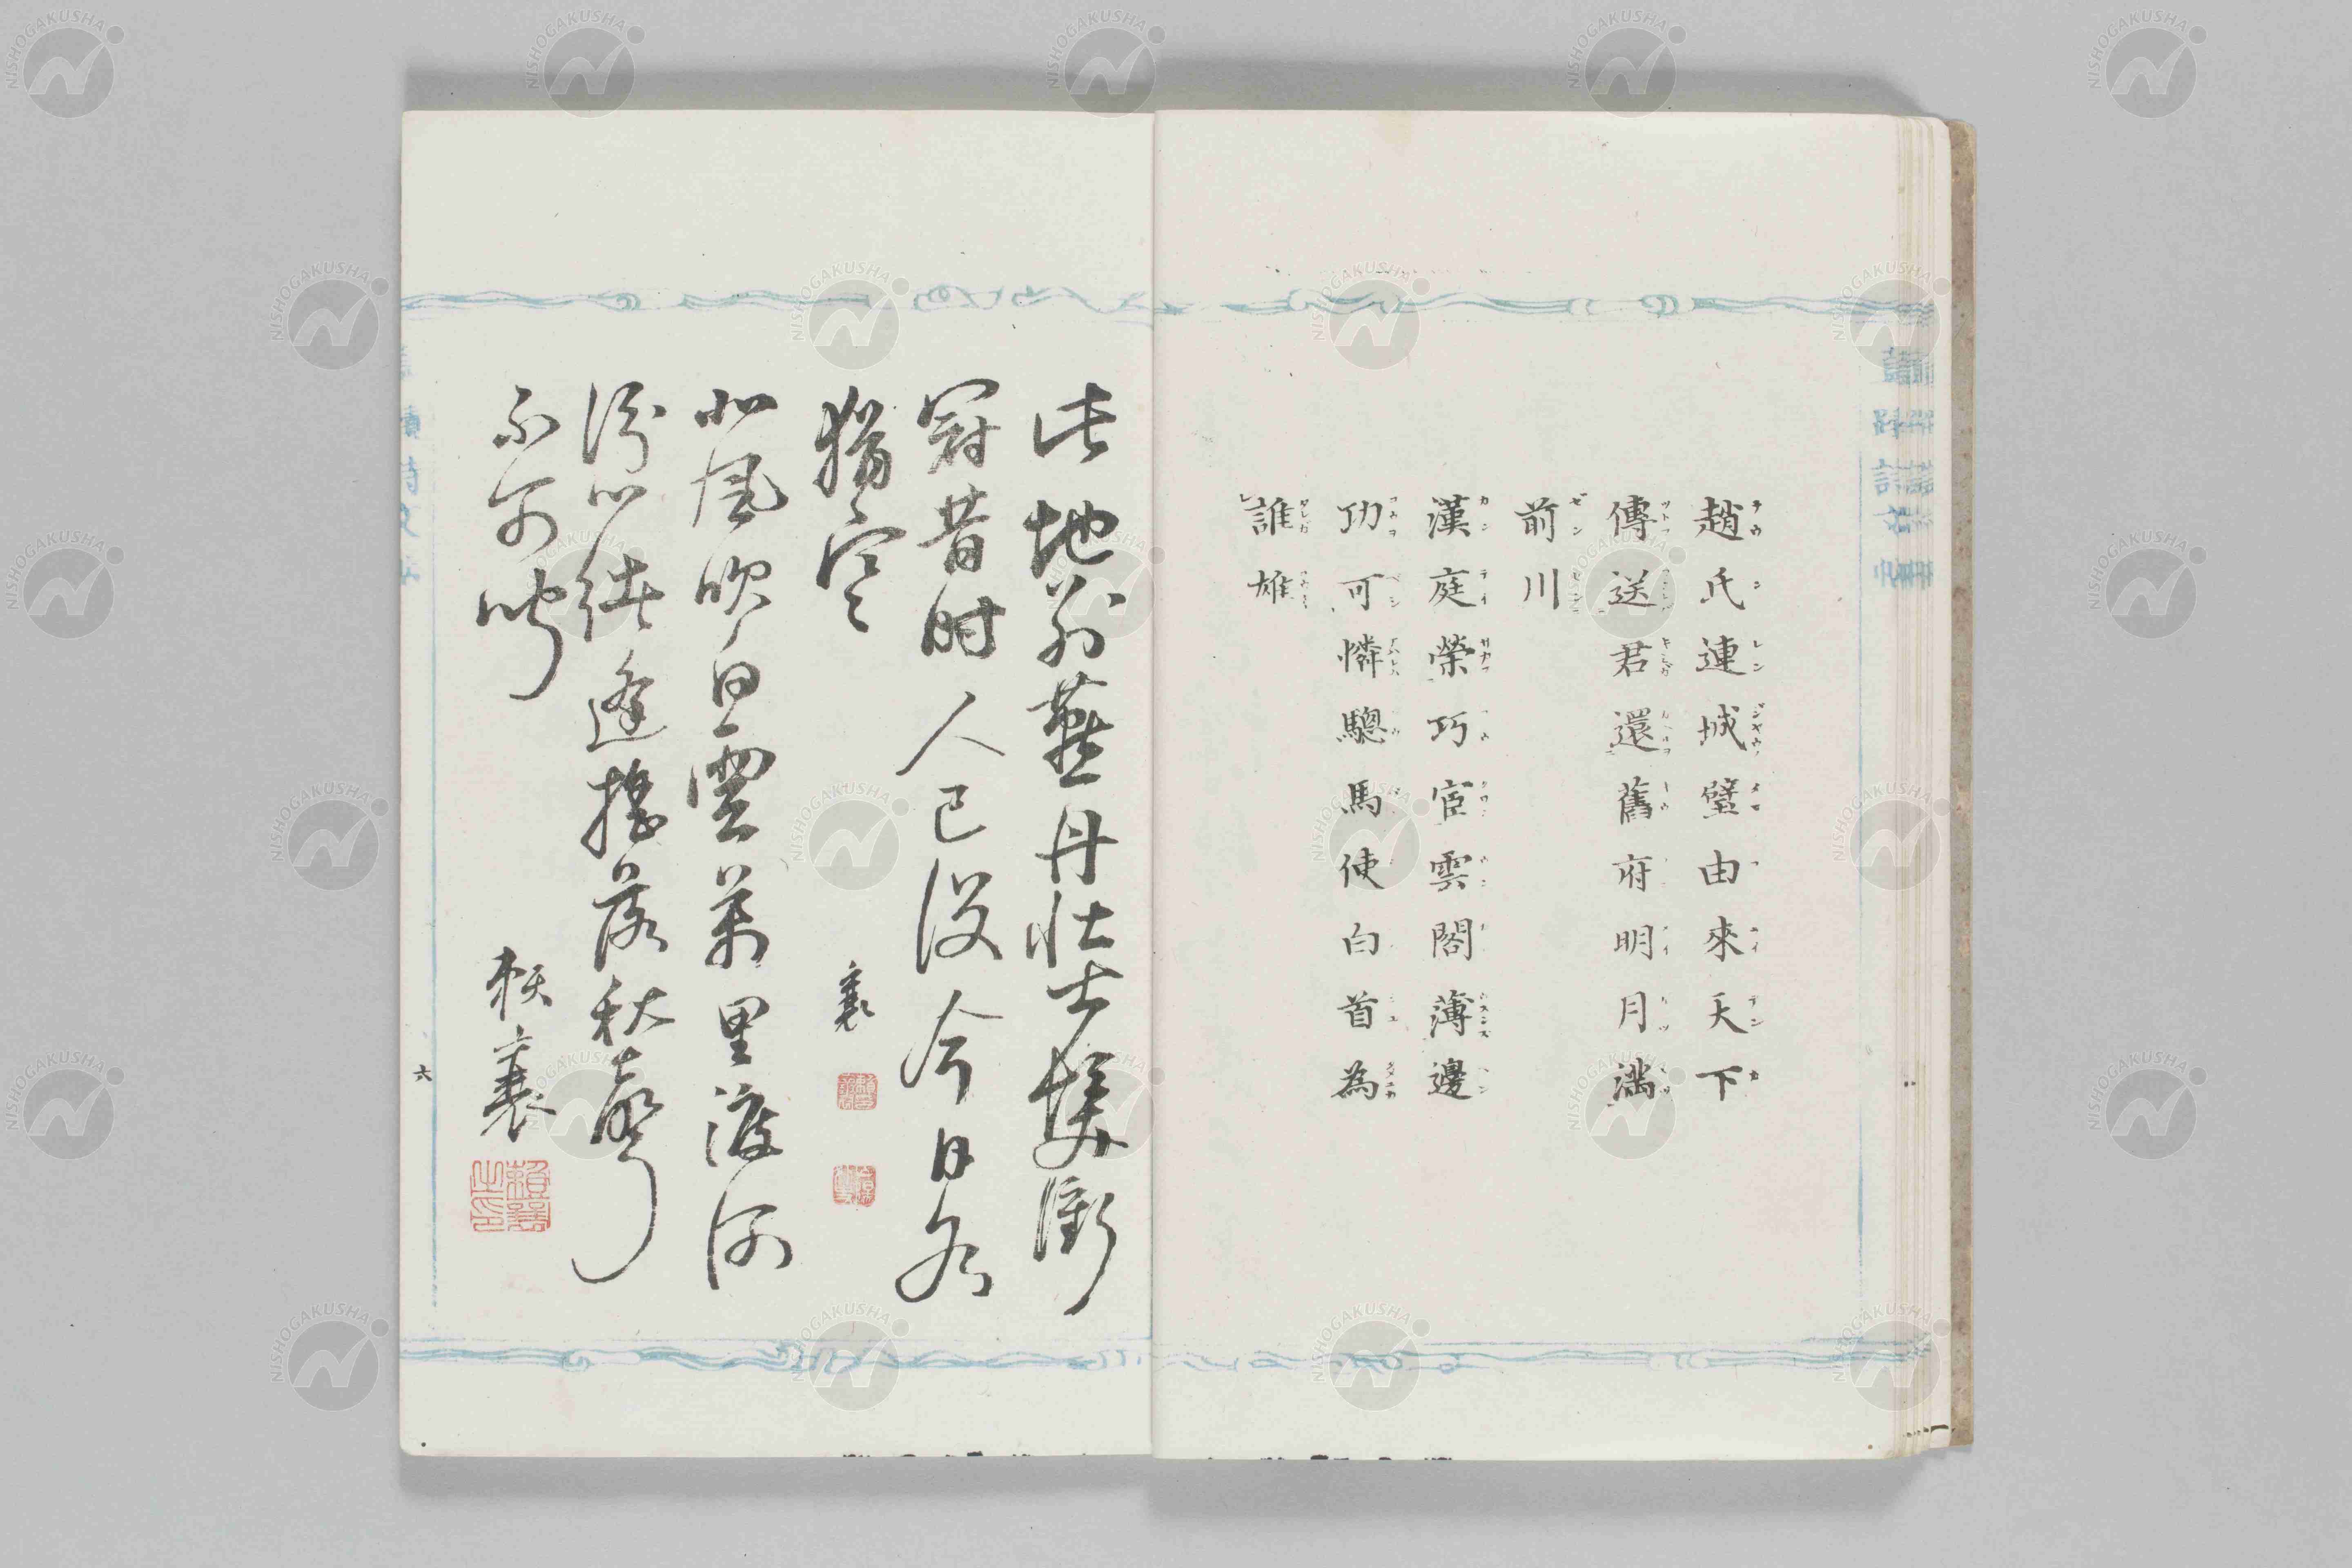 趙氏連城璧由來天下
傳送君還舊府明月滿
前川
漢庭榮巧宦雲閣薄邊
功可憐驄馬使白首為
誰雄
此地別燕丹壯士髮衝
冠昔時人已沒今日水
猶寒
襄
北風吹白雲萬里渡河
汾心緒逢搖落秋聲
不可聞
賴襄
六
NISHOGAKUSHA